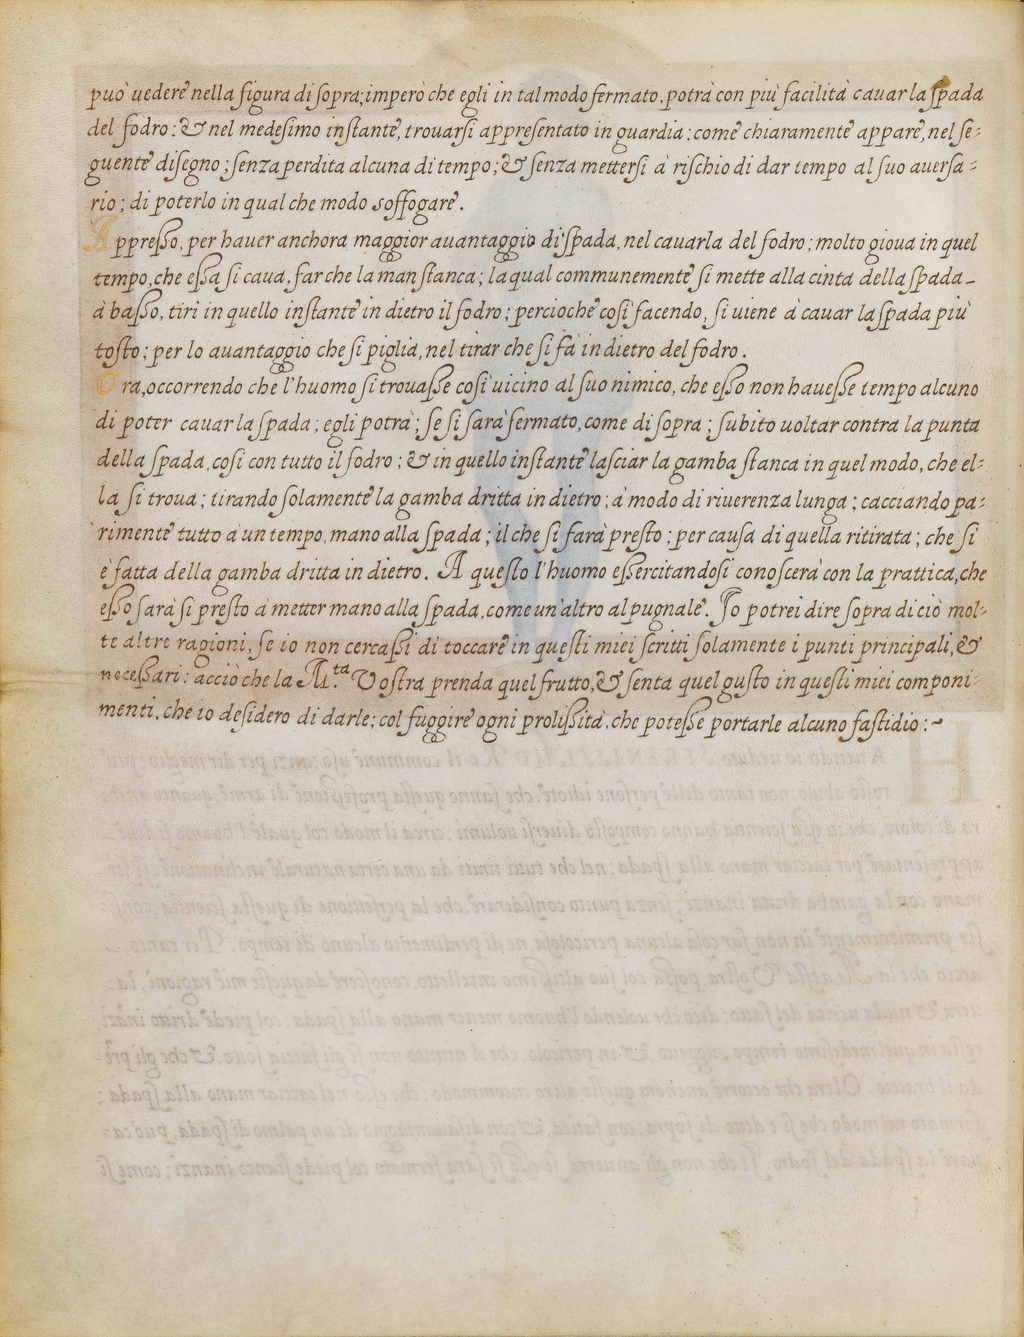 può uedere nella figura di sopra; imperò che egli in tal modo fermato, potrà con più facilità cauar la spada
del fodro: & nel medesimo instante, trouarsi appresentato in guardia: come chiaramente appare, nel se=
guente disegno; senza perdita alcuna di tempo; & senza mettersi à rischio di dar tempo al suo auersa=
rio; di poterlo in qual che modo soffogare.
Appresso, per hauer anchora maggior auantaggio di spada, nel cauarla del fodro; molto gioua in quel
tempo, che essa si caua, far che la man stanca; la qual communemente si mette alla cinta della spada
à basso, tiri in quello instante in dietro il fodro; percioche così facendo, si uiene à cauar la spada più
tosto; per lo auantaggio che si piglia, nel tirar che si fà in dietro del fodro.
Ora, occorrendo che l'huomo si trouasse così uicino al suo nimico, che esso non hauesse tempo alcuno
di poter cauar la spada; egli potrà; se si sarà fermato, come di sopra; subito uoltar contra la punta
della spada, così con tutto il fodro; & in quello instante lasciar la gamba stanca in quel modo, che el=
la si troua; tirando solamente la gamba dritta in dietro; à modo di riuerenza lunga; cacciando pa=
rimente tutto à un tempo, mano alla spada; il che si farà presto; per causa di quella ritirata; che si
è fatta della gamba dritta in dietro. A questo l'huomo essercitandosi conoscerà con la prattica, che
esso sarà sì presto à metter mano alla spada, come un'altro al pugnale. Io potrei dire sopra di ciò mol=
te altre ragioni, se io non cercassi di toccare in questi miei scritti solamente i punti principali, &
necessari: acciò che la M.ta Vostra prenda quel frutto, & senta quel gusto in questi miei componi=
menti, che io desidero di darle; col fuggire ogni prolissità, che potesse portarle alcuno fastidio:~